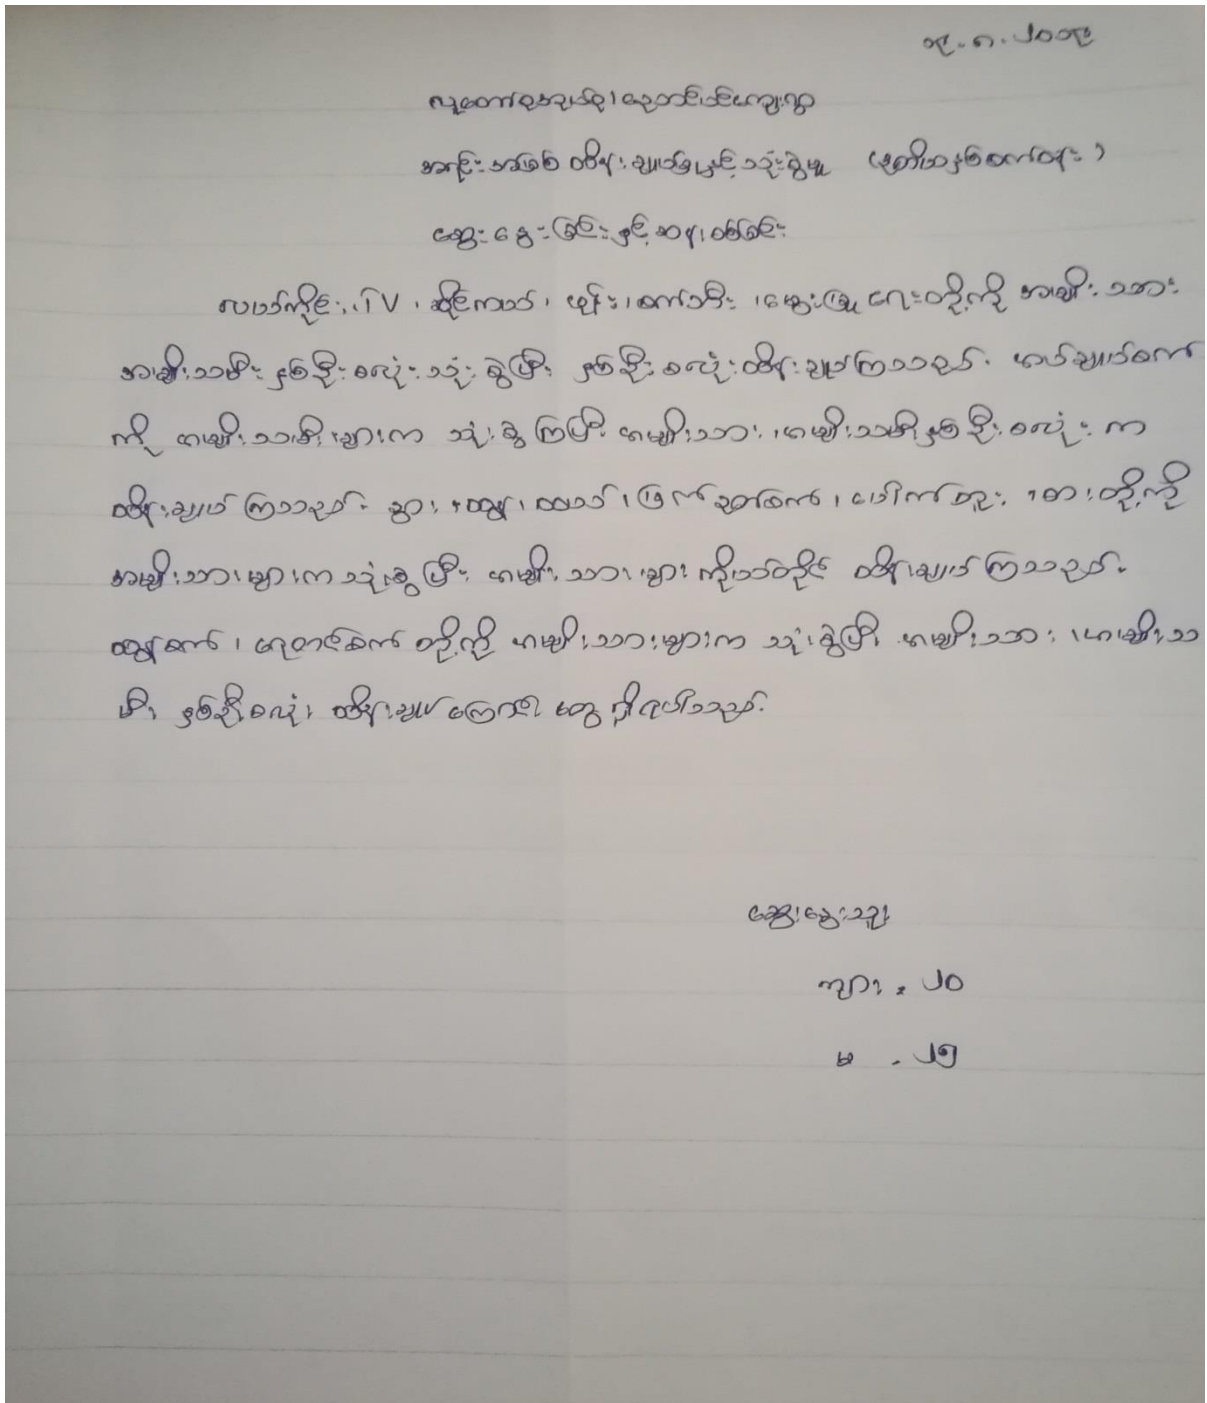 ၁၉.၈.၂၀၁၉
အရင်းအမြစ် ထိန်းချုပ်မှုနှင့်သုံးစွဲမှု
ဆွေးနွေးခြင်းနှင့်ဆန်းစစ်ခြင်း
လယ်ကိုင်း၊ TV ၊ ဆိုင်ကယ်၊ ဖုန်း၊ စက်ဘီး ၊မွေးမြူရေးတို့ကို အမျိုးသား
အမျိုးသမီး နှစ်ဦးစလုံးသုံးစွဲပြီး နှစ်ဦးစလုံးထိန်းချုပ်ကြသည်။ အပ်ချုပ်စက်
ကို အမျိုးသမီးများက သုံးစွဲကြပြီး အမျိုးသား၊အမျိုးသမီးနှစ်ဦးစလုံးက
ထိန်းချုပ်ကြသည်။ နွား၊ထွန်၊ထယ်၊ မြက်ခုတ်စက်၊ ပေါက်တူး၊ဓားတို့ကို
အမျိုးသားများကသုံးစွဲပြီး အမျိုးသားများကိုယ်တိုင် ထိန်းချုပ်ကြသည်။
ထွန်စက်၊ ရေတင်စက်တို့ကို အမျိုးသားများက သုံးစွဲပြီး အမျိုးသား၊အမျိုးသ
မီး နှစ်ဦးစလုံး ထိန်းချုပ်ကြောင်း တွေ့ရှိရပါသည်။
ဆွေးနွေးသူ
ကျား - ၂၀
မ - ၂၅